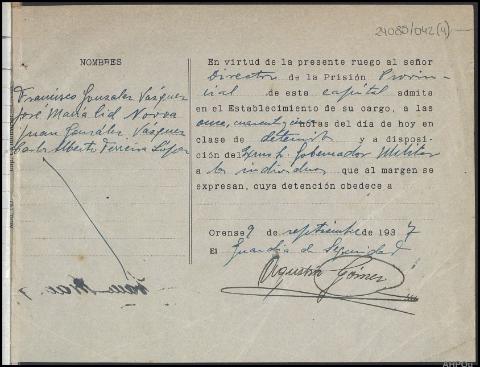 24085/042(4)
NOMBRES
Francisco Gonzalez Vásquez
José María Cid Novoa
Juan González Vásquez
Carlos Alberto Ferreira López
En virtud de la presente ruego al señor
Director de la Prisión Provin-
cial de esta capital admita
en el Establecimiento de su cargo, a las
once, cuarenta y cinco horas del día de hoy en
clase de detenido y a disposi-
ción del Excmo Sr. Gobernador Militar
a los individuos que al margen se
expresan, cuya detención obedece a
Orense 9 de septiembre de 1937
El Guardia de Seguridad
Agustin Gómez
AHPOu